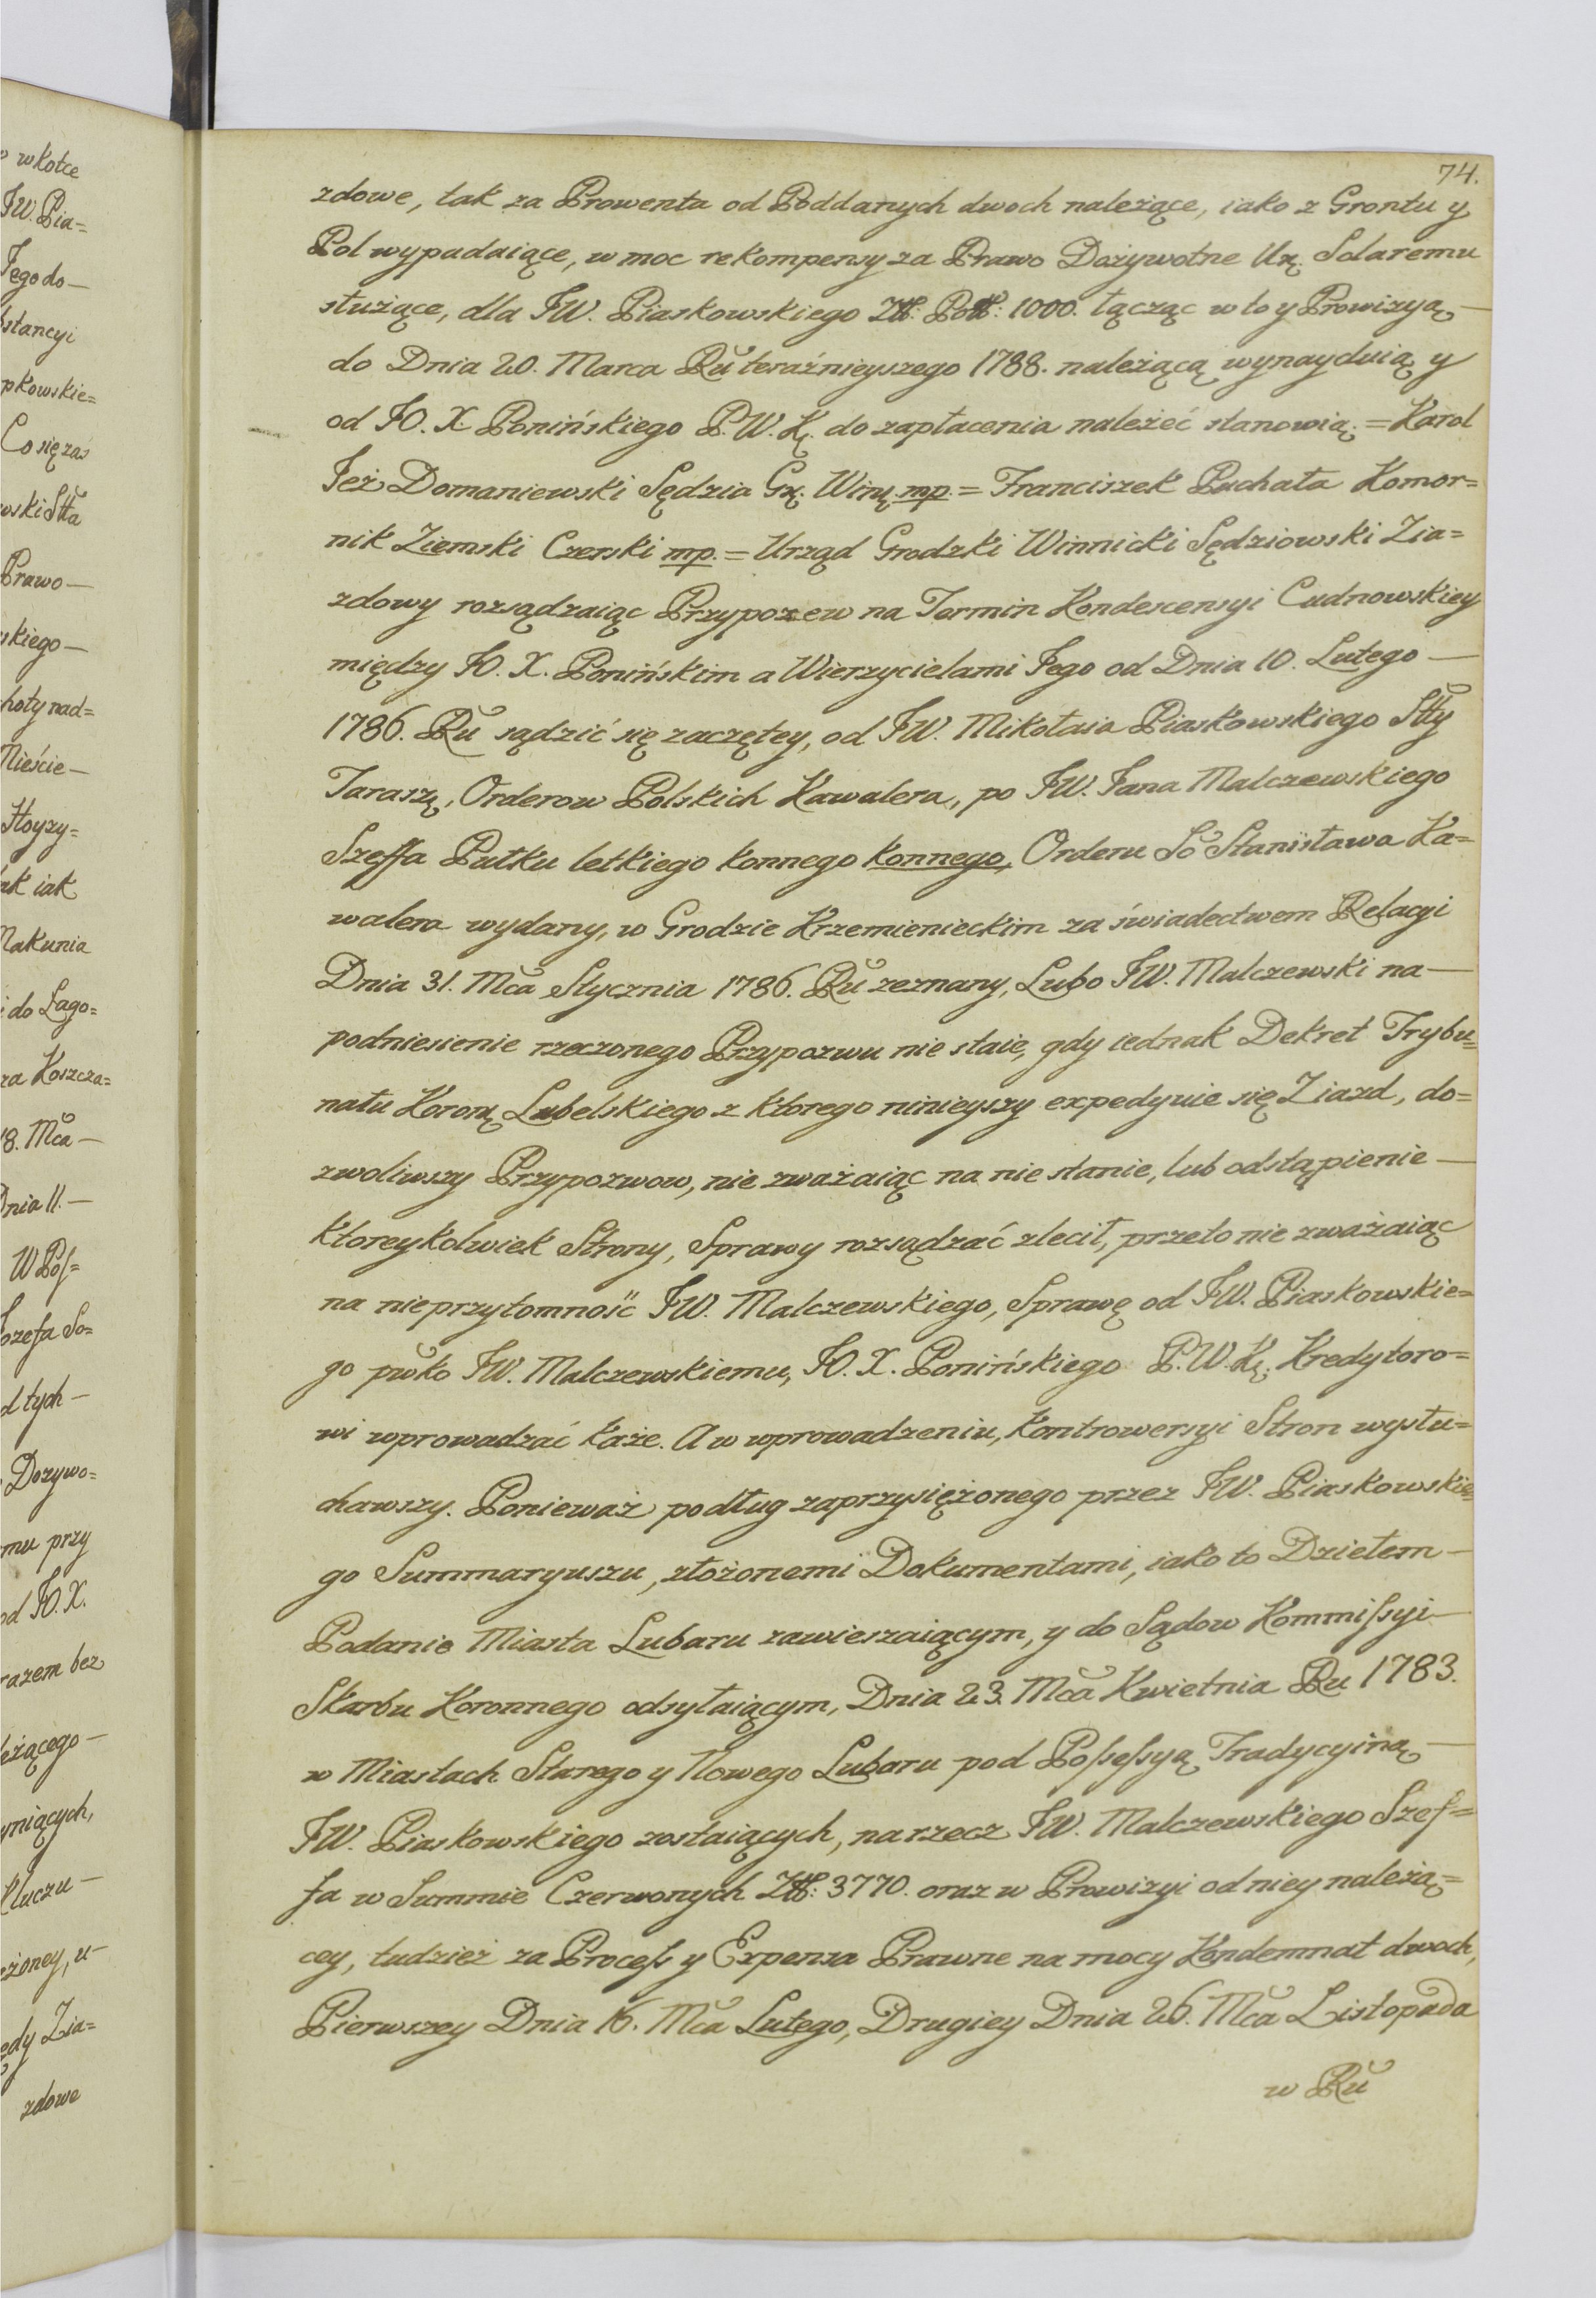 74.
zdowe, tak za Prowenta od Poddanych dwoch należące, iako z Grontu y
Pol wypadaiące, w moc rekompensy za Prawo Dożywotne Ur. Solaremu
służące, dla JW. Piaskowskiego Złł: Poll: 1000. łącząc w to y Prowizyą —
do Dnia 20. Marca Ru teraźnieyszego 1788. należącą wynayduią y
od JO. X. Ponińskiego P.W.K. do zapłacenia należeć stanowią. = Karol
Jeż Domaniewski Sędzia Gr. Winn. mp. = Franciszek Puchała Komor=
nik Ziemski Czerski mp. = Urząd Grodzki Winnicki Sędziowski Zia=
zdowy rozsądzaiąc Przypozew na Termin Kondescensyi Cudnowskiey
między JO. X. Ponińskim a Wierzycielami Jego od Dnia 10. Lutego —
1786. Ru sądzić się zaczętey, od JW. Mikołaia Piaskowskiego Stty
Taraszą, Orderow Polskich Kawalera, po JW. Jana Malczewskiego
Szeffa Pułku letkiego konnego konnego, Orderu So Stanisława Ka=
walera wydany, w Grodzie Krzemienieckim za świadectwem Relacyi
Dnia 31. Mca Stycznia 1786. Ru zeznany, Lubo JW. Malczewski na —
podniesienie rzeczonego Przypozwu nie staie, gdy iednak Dekret Trybu=
nału Koronn Lubelskiego z ktorego ninieyszy expedyuie się Ziazd, do=
zwoliwszy Przypozwow, nie zważaiąc na nie stanie, lub odstąpienie —
ktoreykolwiek Strony, Sprawy rozsądzać zlecił, przeto nie zważaiąc
na nieprzytomność JW. Malczewskiego, Sprawę od JW. Piaskowskie=
go pwko JW. Malczewskiemu, JO. X. Ponińskiego P.W.K. Kredytoro=
wi wprowadzać każe. A w wprowadzeniu, Kontrowersyi Stron wysłu=
chawszy. Ponieważ podług zaprzysiężonego przez JW. Piaskowskie=
go Summaryuszu, złożonemi Dokumentami, iako to Dziełem —
Podanie Miasta Lubaru zawieszaiącym, y do Sądow Kommissyi —
Skarbu Koronnego odsyłaiącym, Dnia 23. Mca Kwietnia Ru 1783.
w Miastach Starego y Nowego Lubaru pod Possessyą Tradycyiną —
JW. Piaskowskiego zostaiących, na rzecz JW. Malczewskiego Szef=
fa w Summie Czerwonych Złł: 3770. oraz w Prowizyi od niey należą=
cey, tudzież za Process y Expensa Prawne na mocy Kondemnat dwoch,
Pierwszey Dnia 16. Mca Lutego, Drugiey Dnia 26. Mca Listopada
w Ru